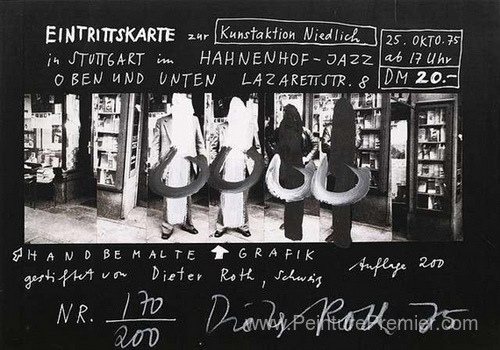 EINTRITTSKARTE zur Kunstaktion Niedlich
in STUTTGART im HAHNENHOF-JAZZ
OBEN UND UNTEN LAZARETTSTR. 8
25. OKTO. 75
ab 17 Uhr
DM 20.-
HANDBEMALTE GRAFIK
gestiftet von Dieter Roth, Schweiz
Auflage 200
NR. 170/200
Dieter Roth 75
www.PeinturePremier.com